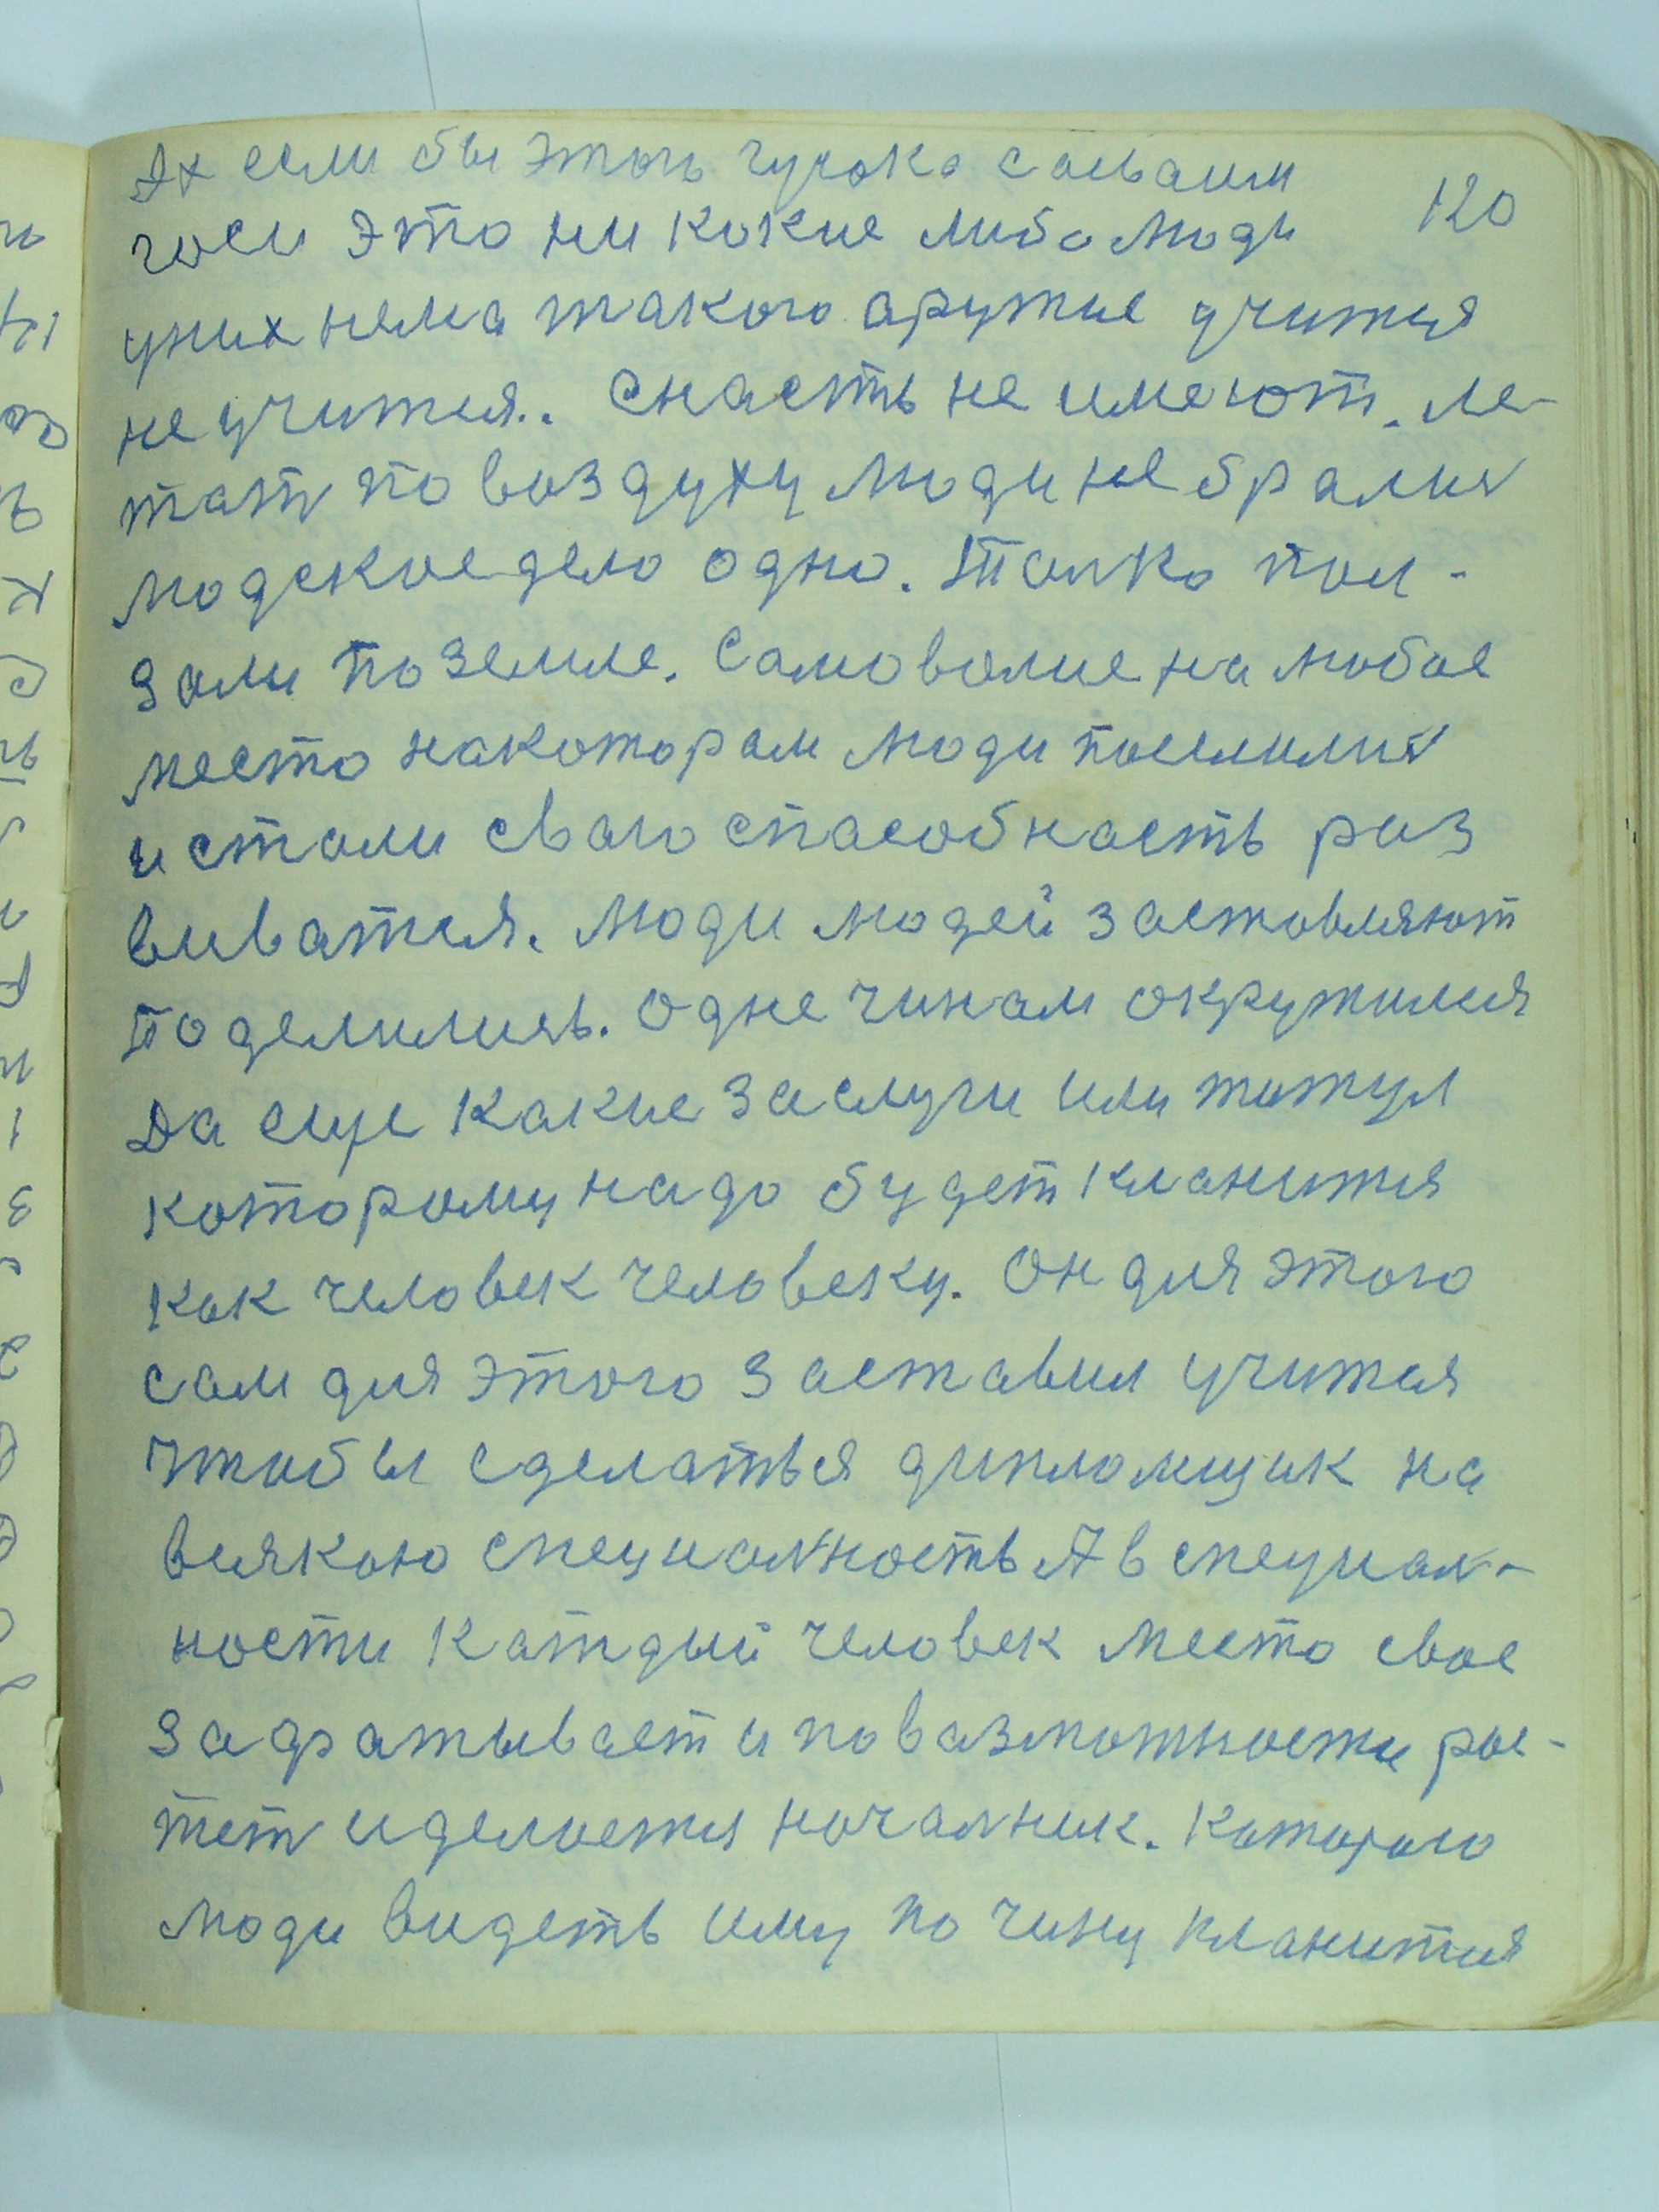 Ах если бы этого чуроко соьваим
120
часи это ни кокие либо люди
уних нема такого аружие учится
не учится.. Снасть не имеют. ле-
тат по воздуху люди не брались
людское дело одно. Толко пол-
золи по земле. Самоволие на любое
место накоторам люди поселились
и стали сваю спасобнасть раз
виватся. Люди людей застовляют
поделились. Одне чинам окружился
Да еще какие заслуги или титул
которому надо будет кланится
как человек человеку. Он для этого
сам для этого заставил учится
чтобы сделаться дипломщик на
всякою специолность А в специал-
ности катдый человек место свое
задратывает и повазможности рос-
тет и делоется ночалник. Которого
люди видеть иму по чину кланится